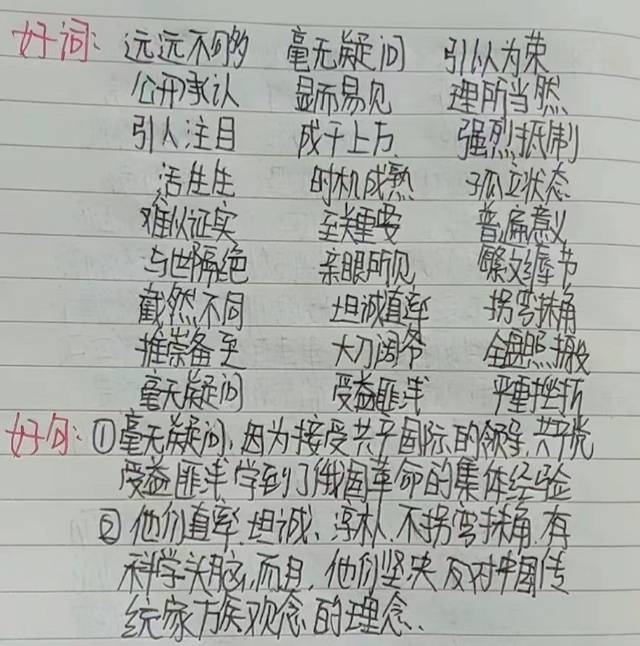 好词: 远远不够 毫无疑问 引以为荣
公开承认 显而易见 理所当然
引人注目 成千上万 强烈抵制
活生生 时机成熟 孤立状态
难以证实 至关重要 普遍意义
与世隔绝 亲眼所见 繁文缛节
截然不同 坦诚直率 拐弯抹角
推崇备至 大刀阔斧 全盘照搬
毫无疑问 受益匪浅 严重挫折
好句: ①毫无疑问,因为接受共产国际的领导,共产党
受益匪浅 学到了俄国革命的集体经验
② 他们直率、坦诚、淳朴、不拐弯抹角,有
科学头脑,而且,他们坚决反对中国传
统家族观念的理念.